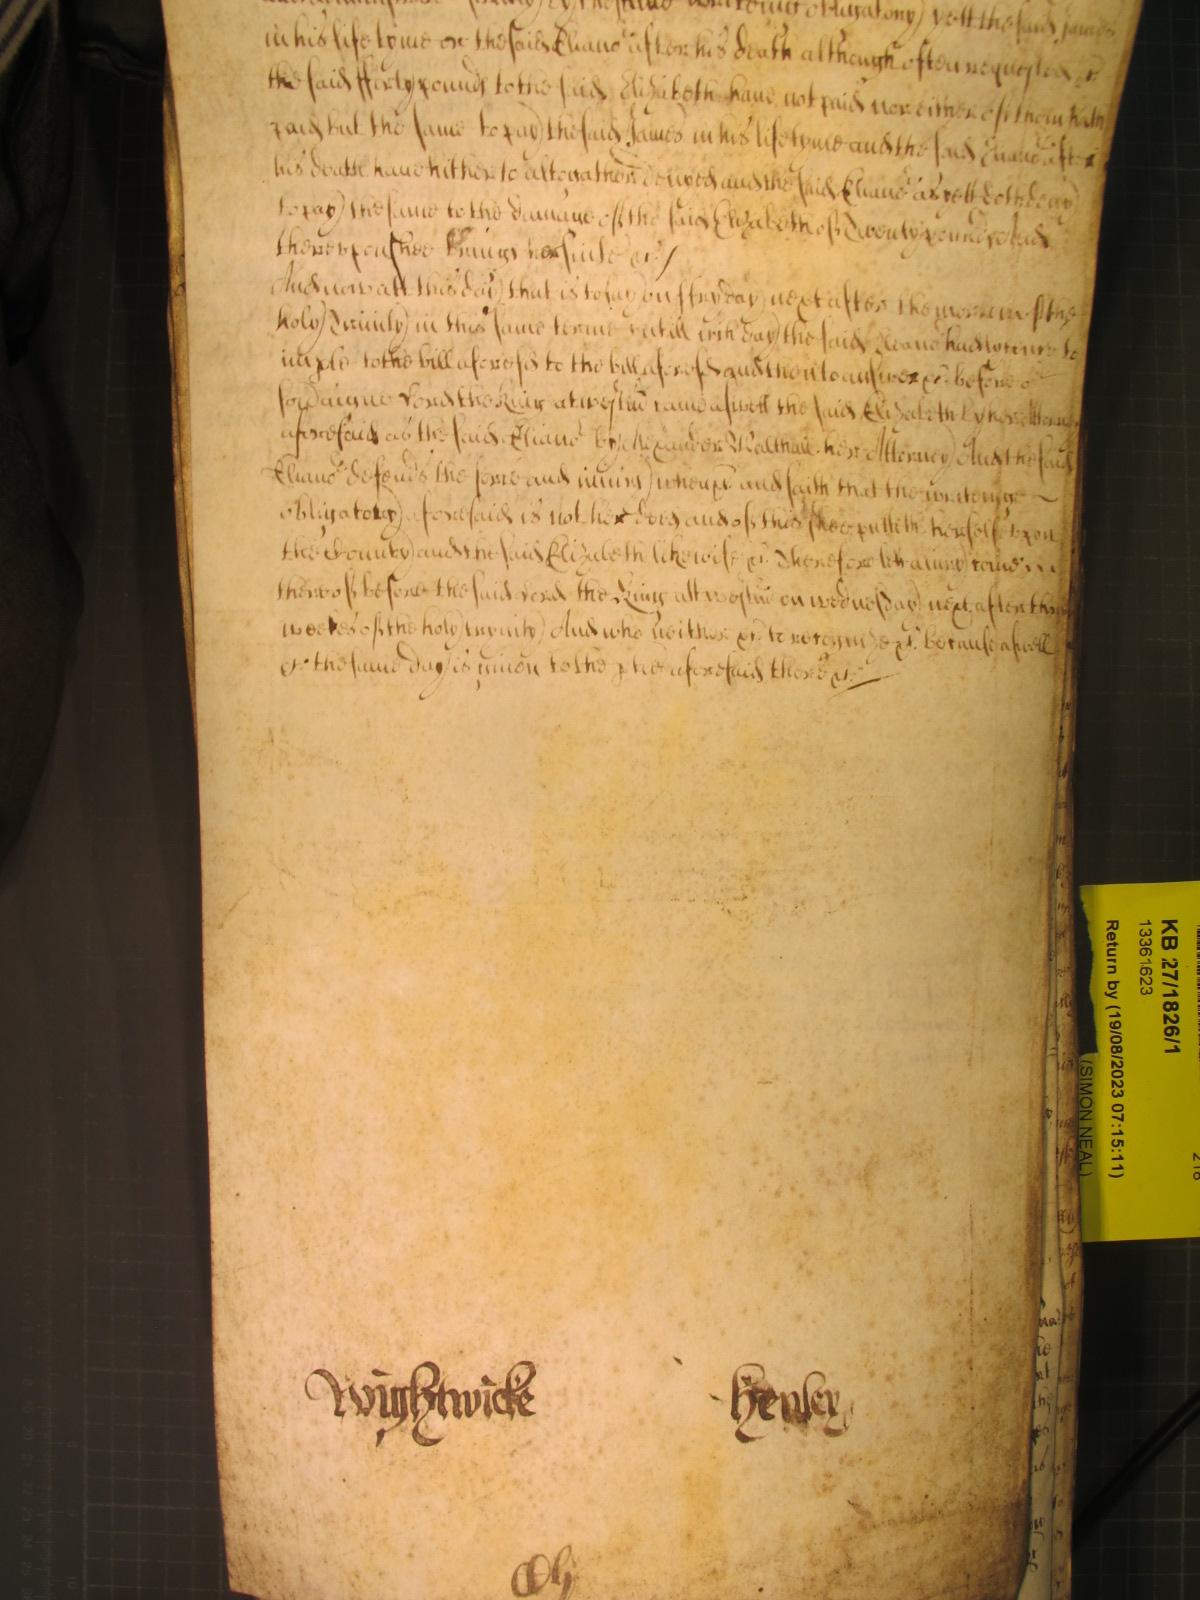 in his life tyme or the said Elianor after his death although often requested &c
the said fforty pounds to the said Elizabeth have not paid nor either of them hath
paid but the same to pay the said James in his life tyme and the said Elianor after
his death have hitherto altogather denyed and the said Elianor as yett doth deny
to pay the same to the damage of the said Elizabeth of Twenty pounds And
thereupon shee brings her suite &c /
And now att this day that is to say on ffryday next after the morrow of the
holy Trinity in this same terme untill wch day the said Elianor had licence to
imple to the bill aforesd to the bill aforesd and then to answer &c before or
soveraigne Lord the King at westmr came aswell the said Elizabeth by her Attorney
aforesaid as the said Elianor by Alexander Walthall her Attorney And the said
Elianor defends the force and iniury when &c and saith that the writeinge
obligatory aforesaid is not her deed and of this shee putteth herselfe upon
the Country and the said Elizabeth likewise &c Therefore lett a iury come
thereof before the said Lord the King att westmr on wednesday next after three
weekes of the holy trynity And who neither &c to recognize &c because aswell
&c the same day is given to the ptie aforesaid there &c
Wightwicke Henley
KB 27/1826/1
13361623
Return by (19/08/2023 07:15:11)
(SIMON NEAL)